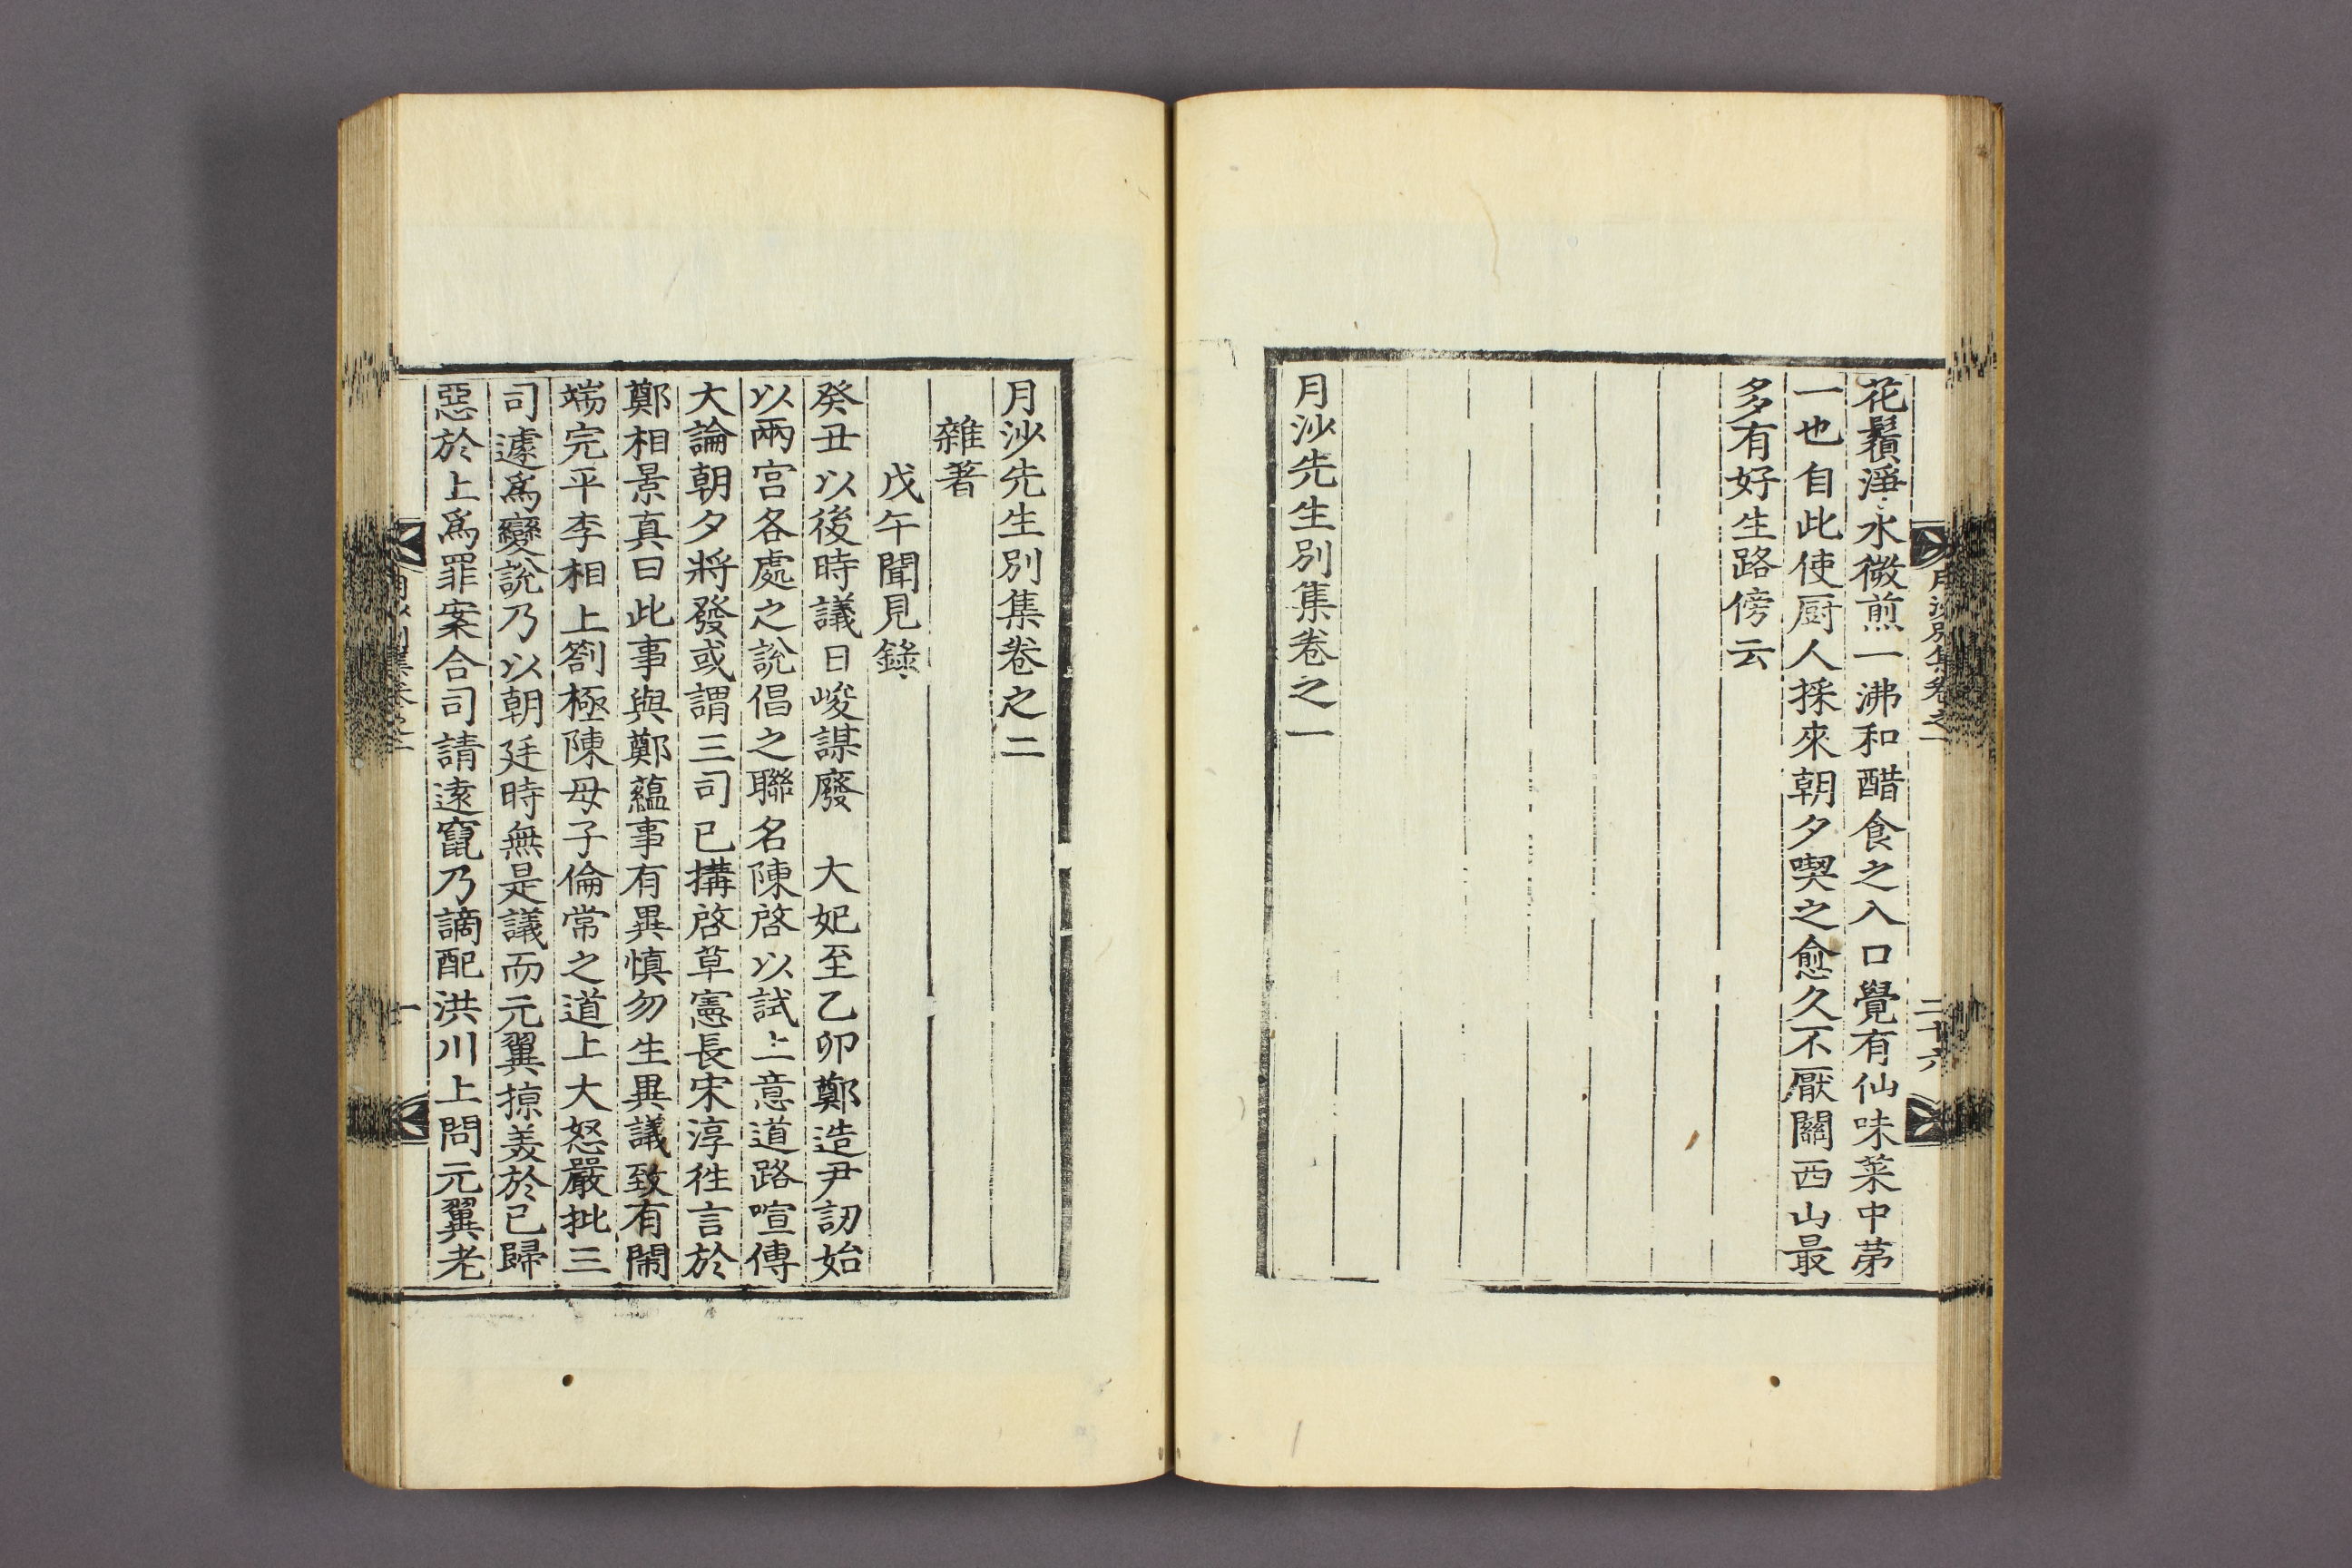 花鬚淨水微煎一沸和醋食之入口覺有仙味菜中苐
一也自此使厨人採來朝夕喫之愈久不厭關西山最
多有好生路傍云
月沙先生別集卷之一
月沙別集卷之一
二十六
月沙先生別集卷之二
雜著
戊午聞見錄
癸丑以後時議日峻謀廢 大妃至乙卯鄭造尹訒始
以兩宮各處之說倡之聯名陳啓以試上意道路喧傳
大論朝夕將發或謂三司已搆啓草憲長宋淳徃言於
鄭相景真曰此事與鄭蘊事有異慎勿生異議致有閙
端完平李相上劄極陳母子倫常之道上大怒嚴批三
司遽爲變說乃以朝廷時無是議而元翼掠美於己歸
惡於上爲罪案合司請遠竄乃謫配洪川上問元翼老
一